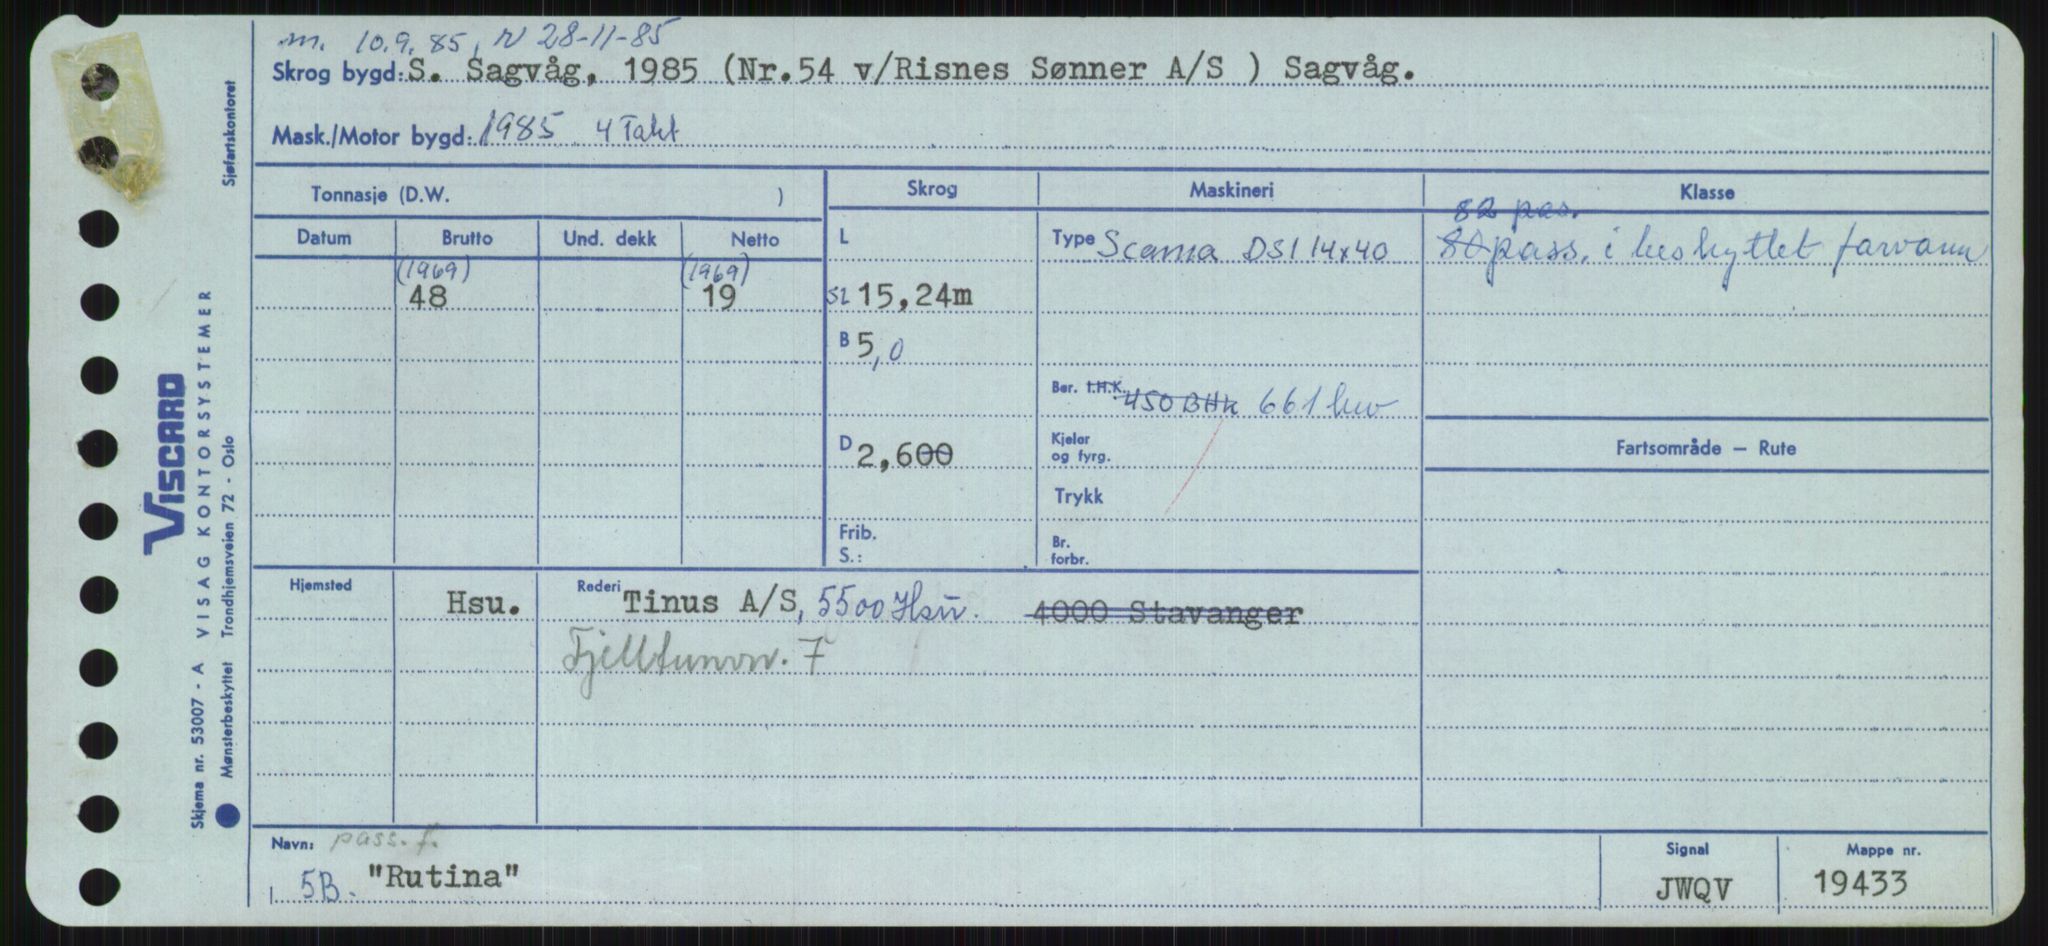 m. 10.9.85, N 28-11-85
Skrog bygd: S. Sagvåg, 1985 (Nr.54 v/Risnes Sønner A/S ) Sagvåg.
Mask./Motor bygd: 1985 4 Takt
Tonnasje (D.W. )
Skrog
Maskineri
Klasse
Datum
Brutto
Und. dekk
Netto
(1969)
(1969)
48
19
L
SL 15,24m
B 5,0
D 2,600
Frib.
S.:
Type Scania DSI 14x40
Ber. I.H.K. 450 BHK 661 kw
Kjeler
og fyrg.
Trykk
Br.
forbr.
82 pas.
80 pass. i beskyttet farvann
Fartsområde – Rute
Hjemsted
Hsu.
Rederi Tinus A/S, 5500 Hsu. 4000 Stavanger
Fjelltunvn. 7
Navn: pass. f.
5B. "Rutina"
Signal
JWQV
Mappe nr.
19433
VISCARD
Skjema nr. 53007 - A VISAG KONTORSYSTEMER
Mønsterbeskyttet Trondhjemsveien 72 - Oslo
Sjøfartskontoret